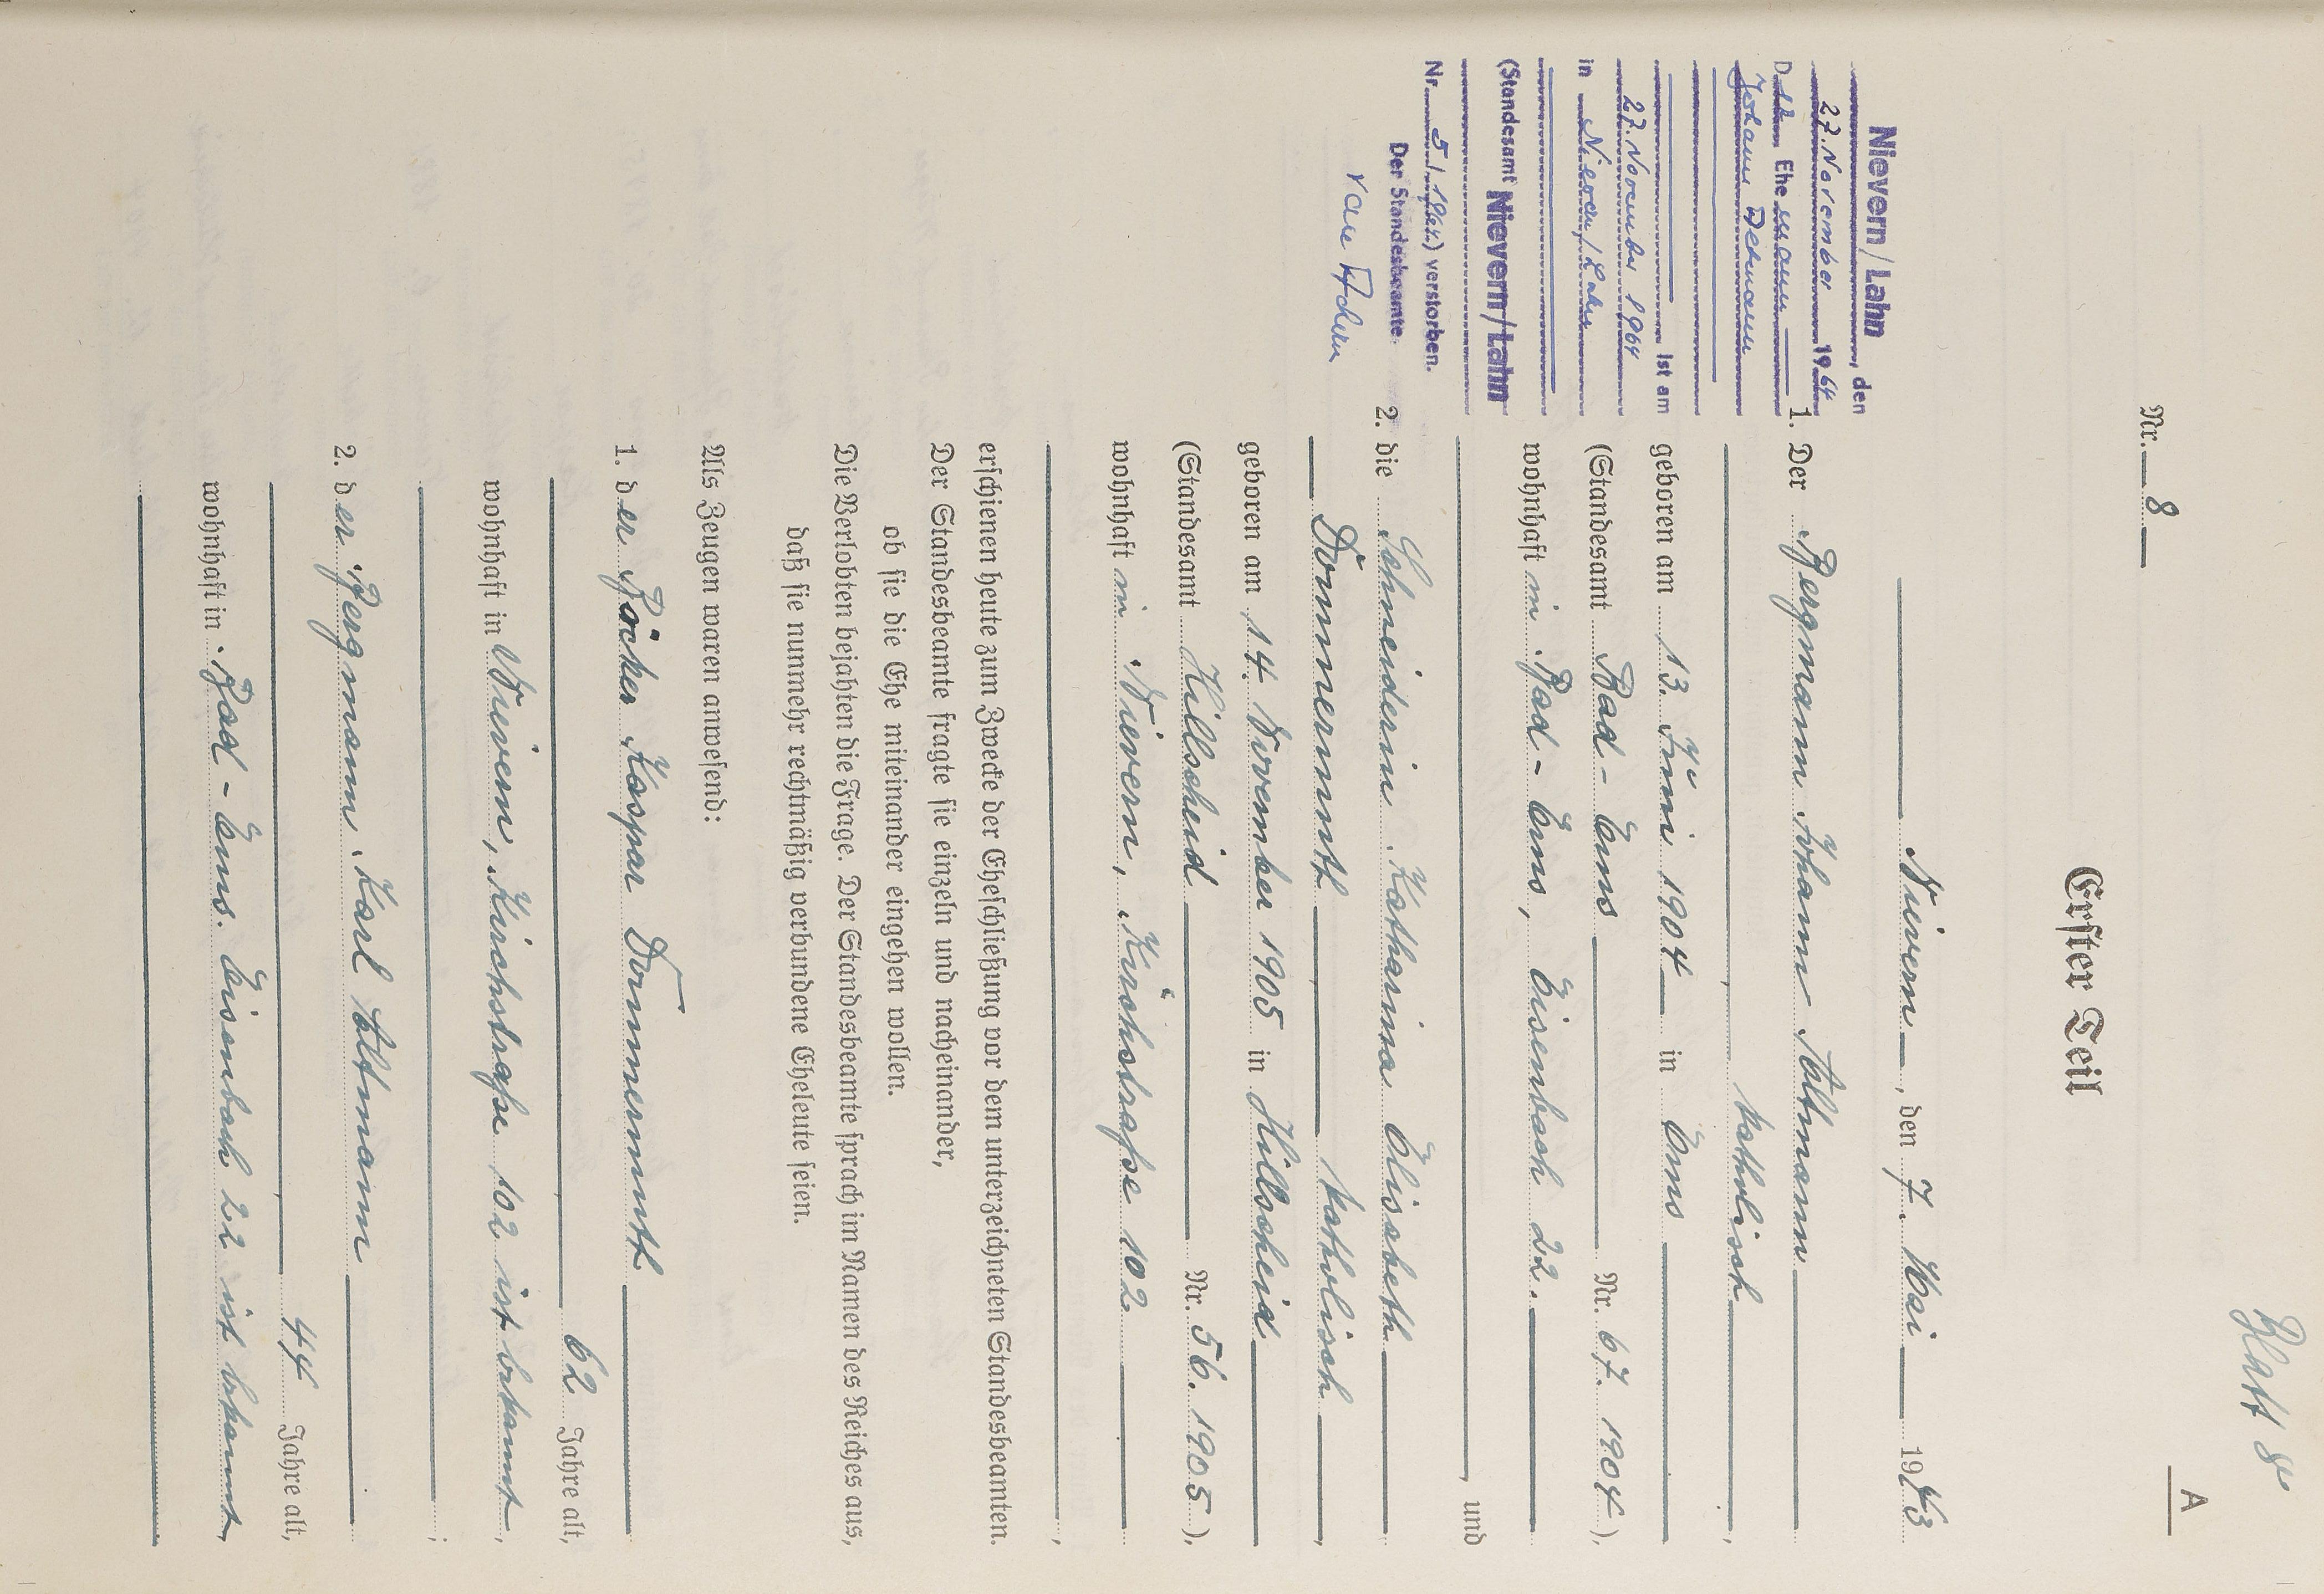 Blatt 8
A
Nr. 8
Erster Teil
Nievern, den 7. Mai 1943
1. Der Bergmann Johann
katholisch,
geboren am 13. Juni 1904 in Ems
(Standesamt Bad-Ems Nr. 67. 1904),
wohnhaft in Bad-Ems, Eisenbach 22.
, und
2. die Schneiderin Katharina Elisabeth
Dommermuth, katholisch,
geboren am 14. November 1905 in Hillscheid
(Standesamt Hillscheid Nr. 56. 1905),
wohnhaft in Nievern, Kirchstraße 102
,
erschienen heute zum Zwecke der Eheschließung vor dem unterzeichneten Standesbeamten.
Der Standesbeamte fragte sie einzeln und nacheinander,
ob sie die Ehe miteinander eingehen wollen.
Die Verlobten bejahten die Frage. Der Standesbeamte sprach im Namen des Reiches aus,
daß sie nunmehr rechtmäßig verbundene Eheleute seien.
Als Zeugen waren anwesend:
1. der Bäcker Kaspar Dommermuth
, 62 Jahre alt,
wohnhaft in Nievern, Kirchstraße 102 ist bekannt,
;
2. der Bergmann Karl
, 44 Jahre alt,
wohnhaft in Bad-Ems. Eisenbach 22 ist bekannt,
Nievern/Lahn, den
27. November 1964
Der Ehemann
Johann
ist am
27. November 1964
in Nievern/Lahn
(Standesamt Nievern/Lahn
Nr. 5/1964) verstorben.
Der Standesbeamte